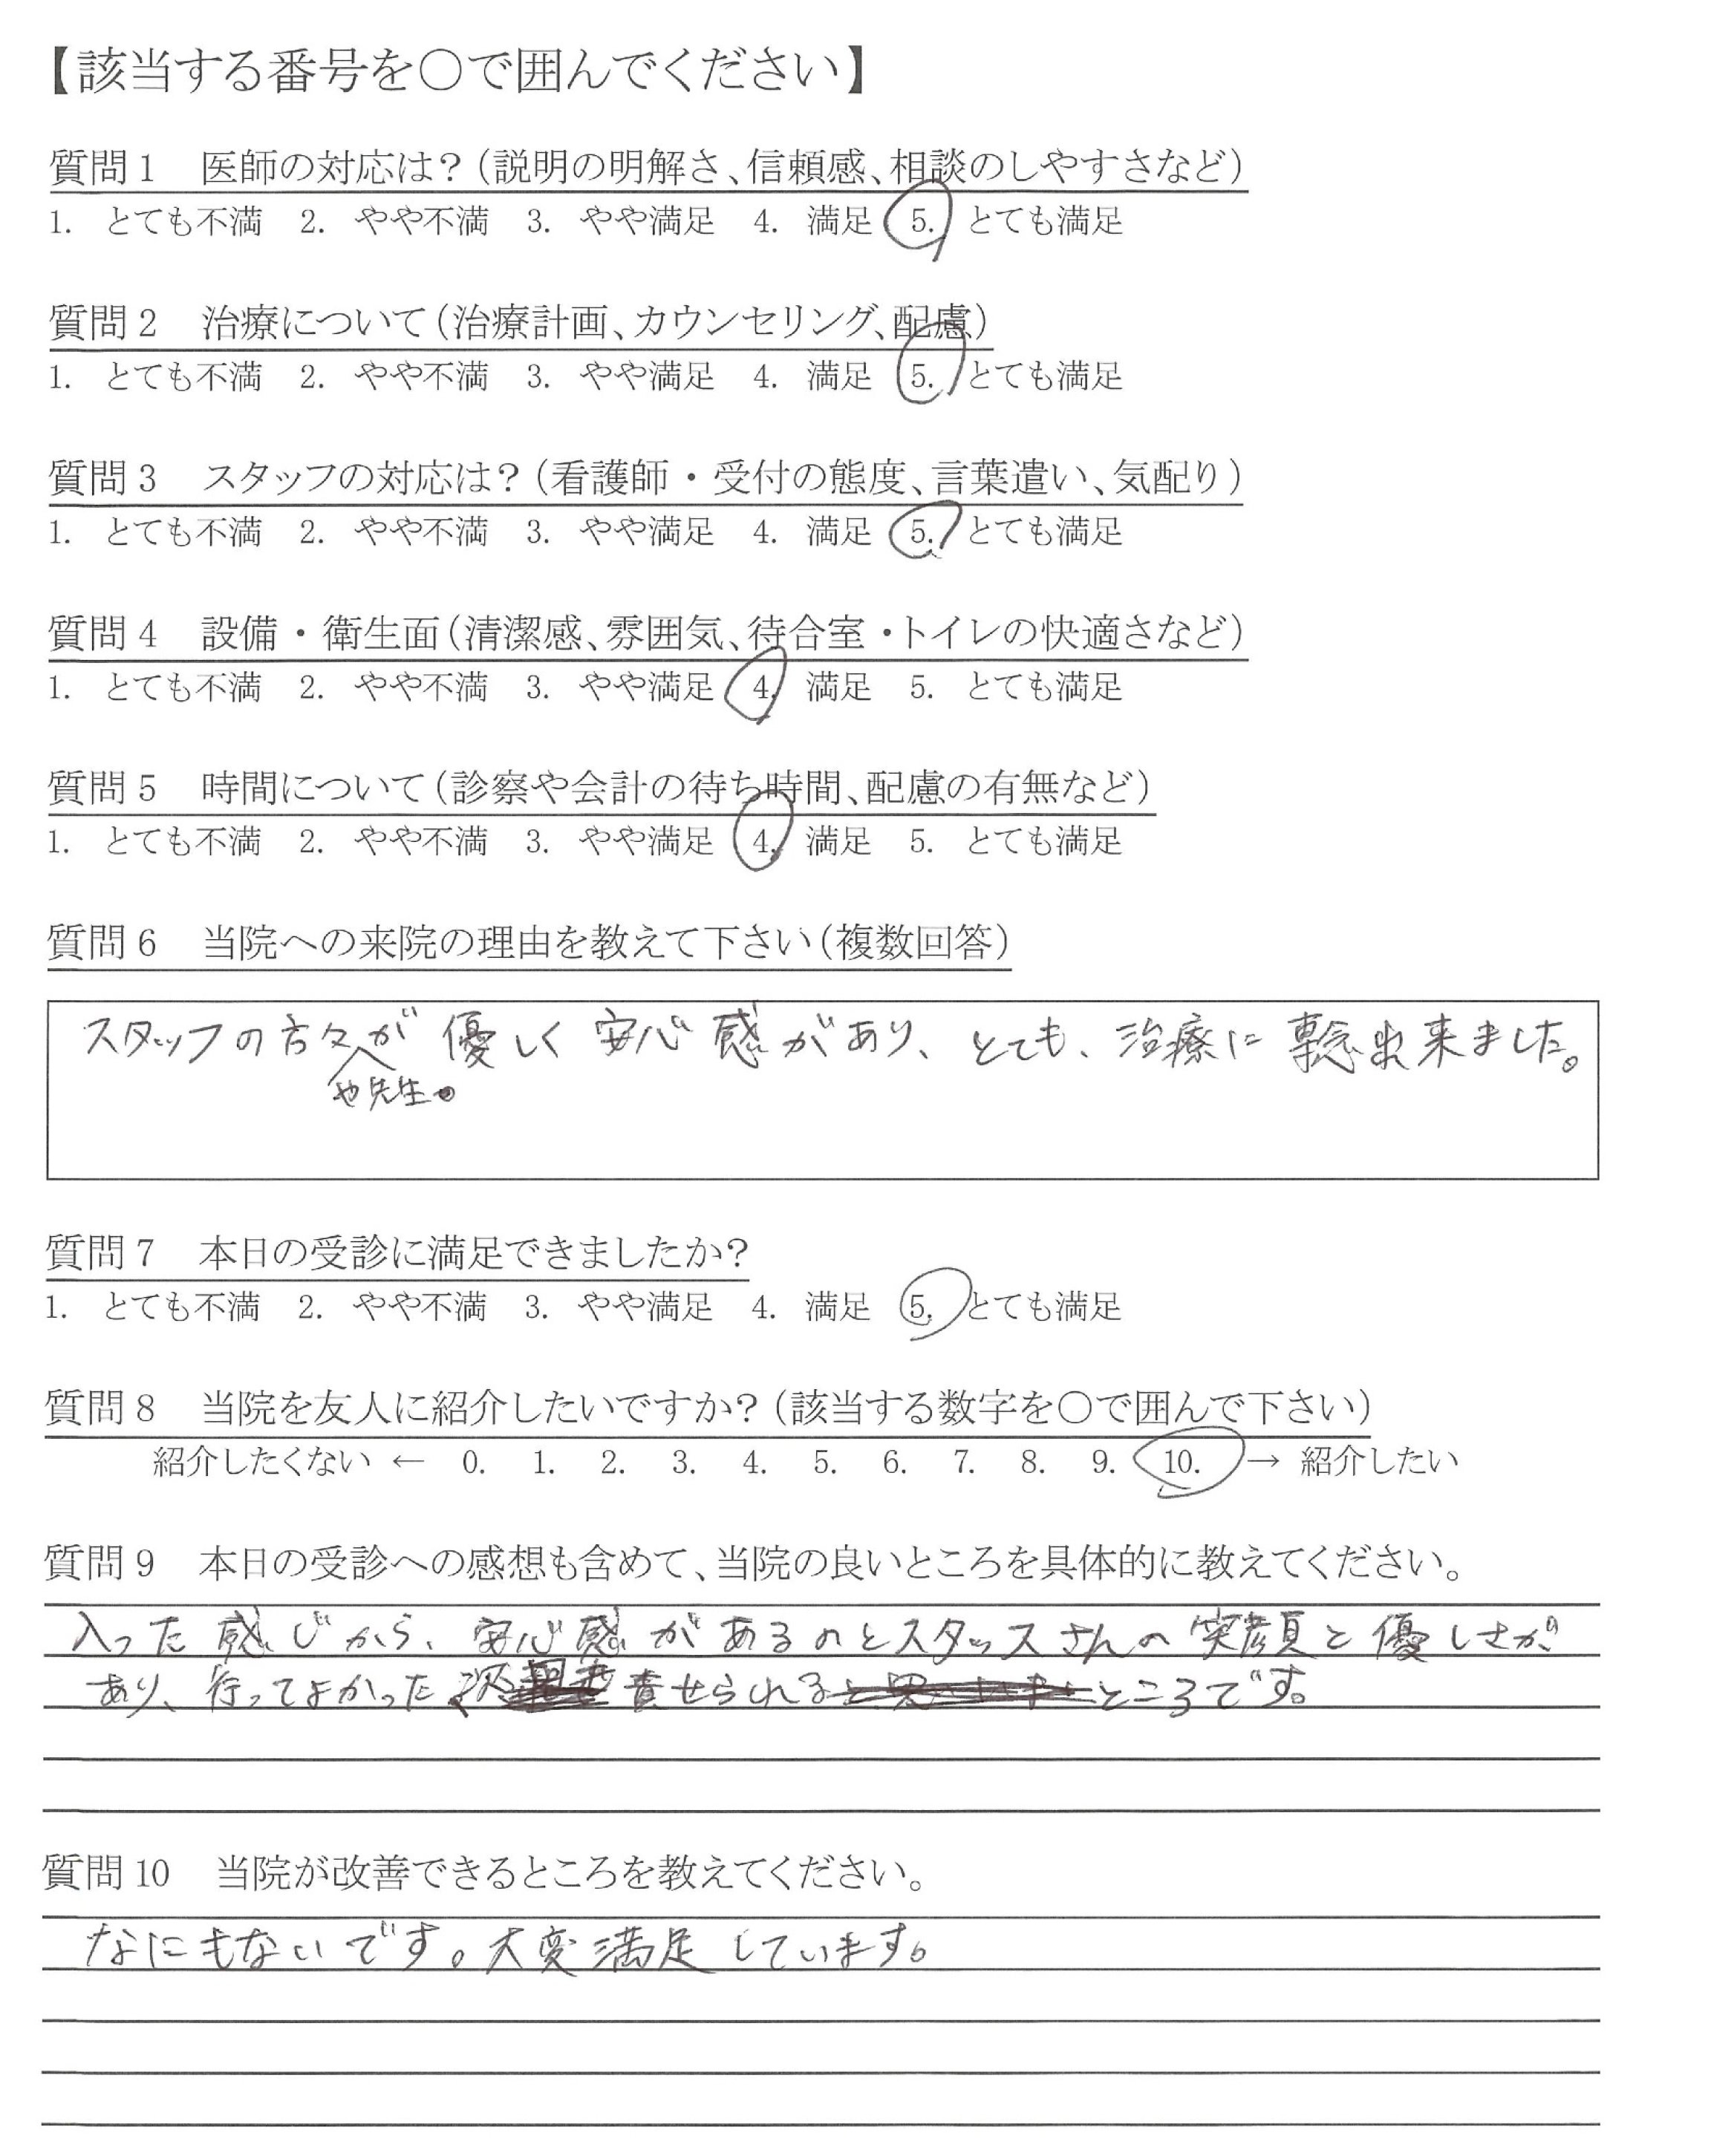 【該当する番号を○で囲んでください】
質問1　医師の対応は？（説明の明解さ、信頼感、相談のしやすさなど）
1. とても不満　2. やや不満　3. やや満足　4. 満足　5. とても満足
質問2　治療について（治療計画、カウンセリング、配慮）
1. とても不満　2. やや不満　3. やや満足　4. 満足　5. とても満足
質問3　スタッフの対応は？（看護師・受付の態度、言葉遣い、気配り）
1. とても不満　2. やや不満　3. やや満足　4. 満足　5. とても満足
質問4　設備・衛生面（清潔感、雰囲気、待合室・トイレの快適さなど）
1. とても不満　2. やや不満　3. やや満足　4. 満足　5. とても満足
質問5　時間について（診察や会計の待ち時間、配慮の有無など）
1. とても不満　2. やや不満　3. やや満足　4. 満足　5. とても満足
質問6　当院への来院の理由を教えて下さい（複数回答）
スタッフの方々が優しく安心感があり、とても、治療に専念出来ました。
や先生
質問7　本日の受診に満足できましたか？
1. とても不満　2. やや不満　3. やや満足　4. 満足　5. とても満足
質問8　当院を友人に紹介したいですか？（該当する数字を○で囲んで下さい）
紹介したくない ← 0. 1. 2. 3. 4. 5. 6. 7. 8. 9. 10. → 紹介したい
質問9　本日の受診への感想も含めて、当院の良いところを具体的に教えてください。
入った感じから、安心感があるのとスタッスさんの笑顔と優しさが
あり、行ってよかった 責せられるところです。
質問10　当院が改善できるところを教えてください。
なにもないです。大変満足しています。